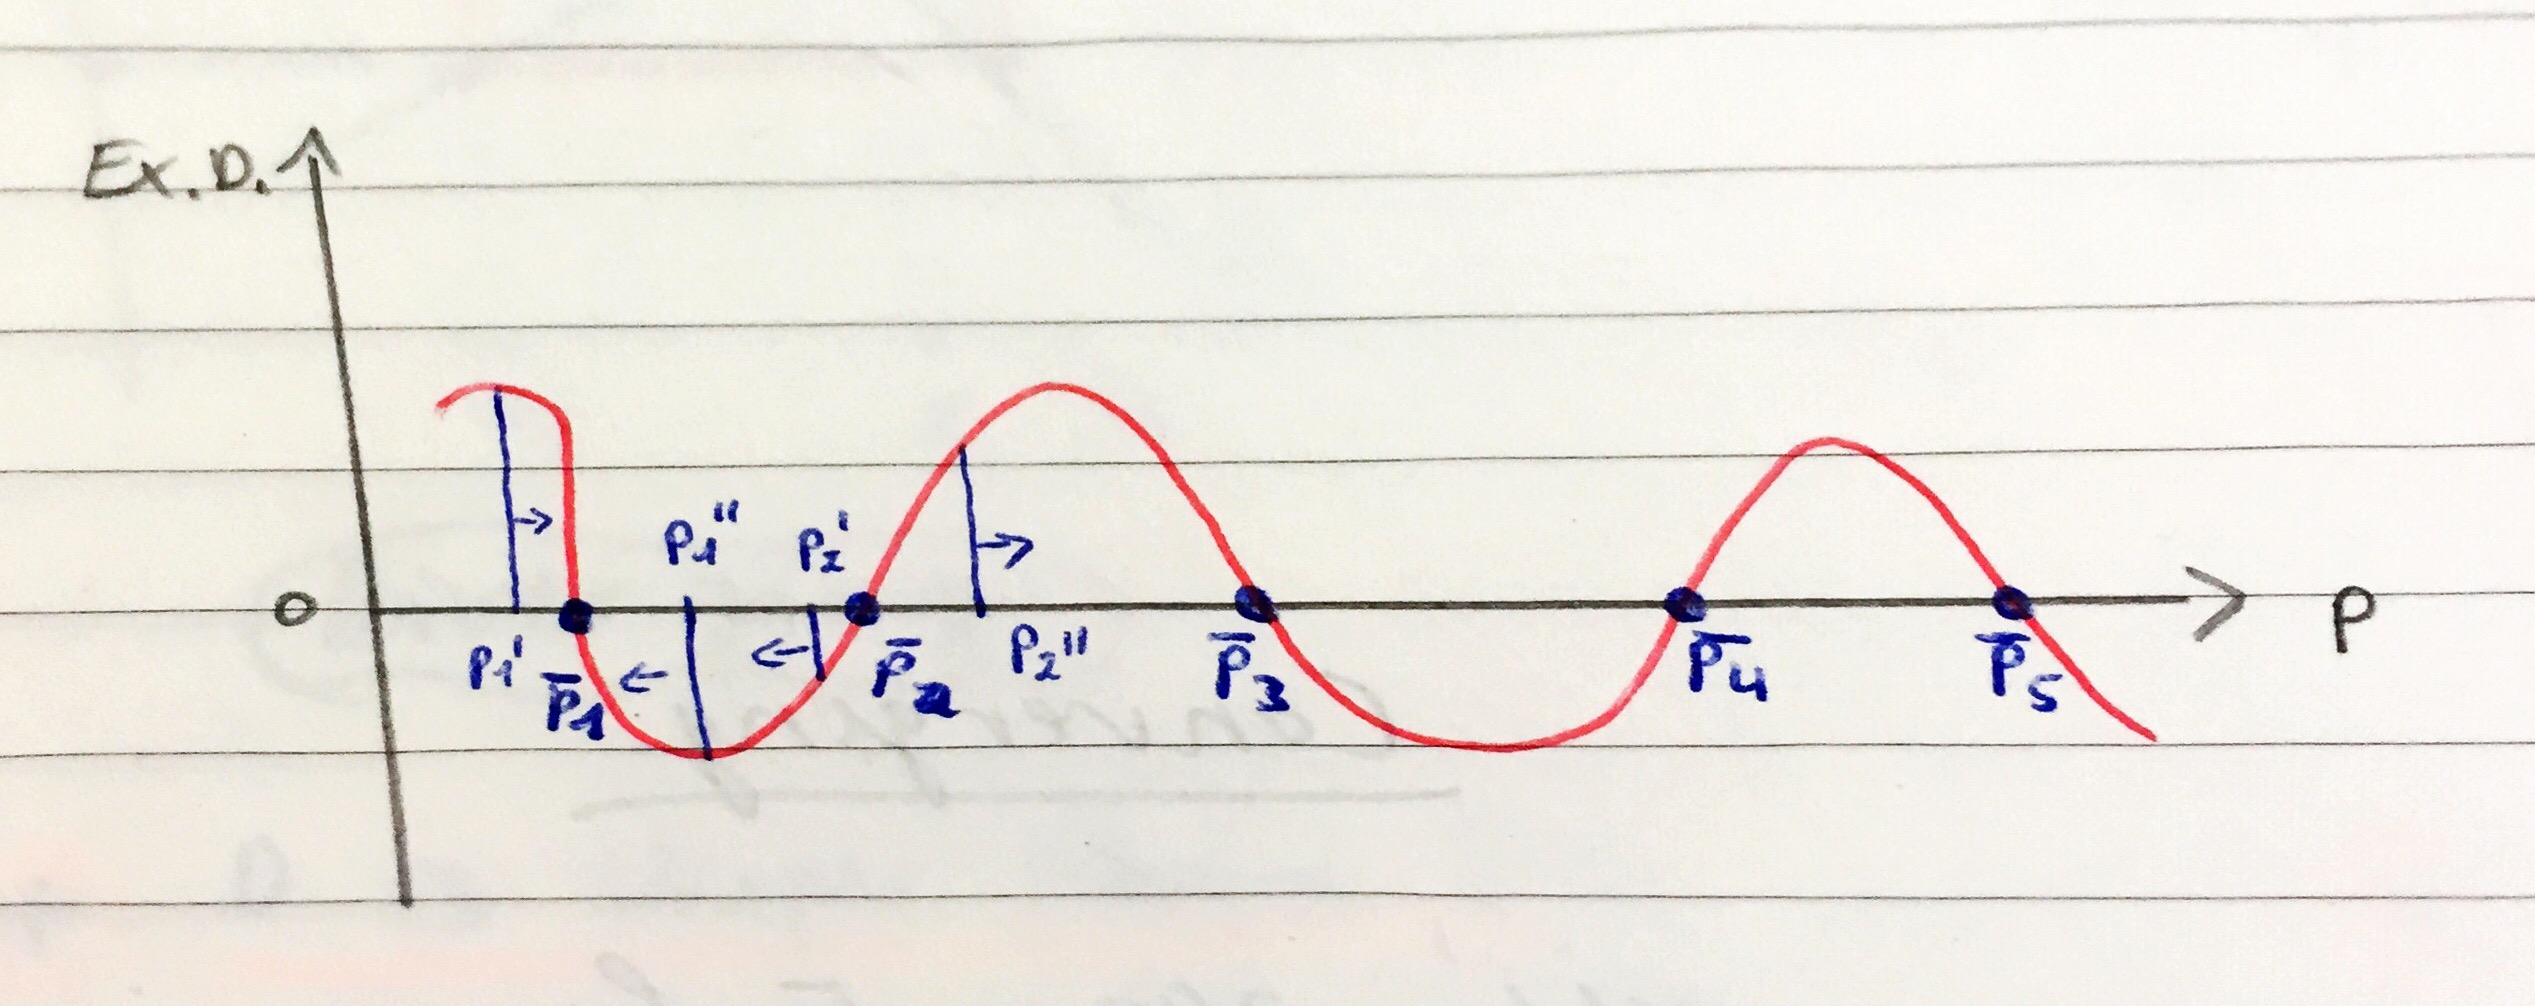 Ex.D.
P1'' P2'
0 P
P1' P̄1 P̄2 P2'' P̄3 P̄4 P̄5